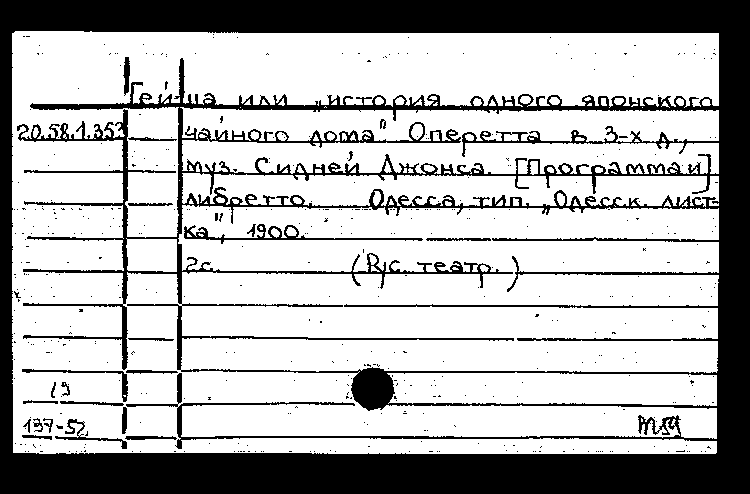 Гейша или „история одного японского
20.58.1.353 чайного дома" Оперетта в 3-х д.,
муз. Сидней Джонса. [Программа и]
либретто. Одесса, тип. „Одесск. лист-
ка", 1900.
2с. (R/с. театр.)
19
137-52